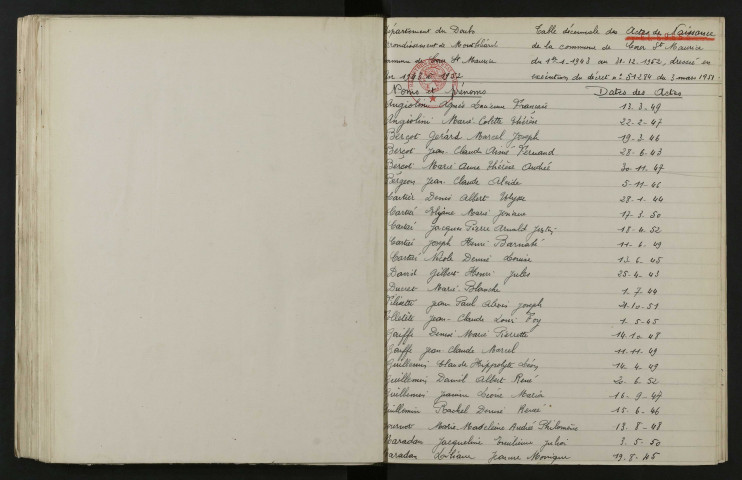 épartement du Doubs Table décennale des Actes de Naissance
rrondissement de Montbéliard de la commune de Cour St Maurice
ommune de Cour St Maurice du 1er-1-1943 au 31.12.1952, dressée en
exécution du décret n° 51284 du 3 mars 1951.
Noms et prénoms Dates des Actes
Angiolini Agnès Lucienne François 13. 3. 49
Angiolini Marie Colette Thérèse 22-2-47
Berçot Gérard Marcel Joseph 19-3-46
Berçot Jean Claude Aimé Fernand 28-6-43
Berçot Marie Anne Thérèse Andrée 30-11-47
Bergeon Jean Claude Alcide 5-11-46
Cartier Denis Albert Ulysse 28-1-44
Cartier Marie 17-3-50
Cartier Jacques Pierre Arnold 18-4-52
Cartier Joseph Henri Barnabé 11-6-49
Cartier Nicole Denise Louise 13. 6. 45
David Gilbert Henri Jules 25-4-43
Marie Blanche 1. 7. 44
Jean Paul Aloïs Joseph 21-10-51
Jean-Claude Louis 1. 5-45
Gaiffe Denise Marie Pierrette 14-10-48
Gaiffe Jean Claude Marcel 11-11-49
Guillemin Claude Hippolyte Léon 14. 4. 49
uillemin Daniel Albert René 20-6-52
uillemin Jeanne Léonie Maria 16-9-47
uillemin Rachel Denise Renée 15-6-46
Marie Madeleine Andrée Philomène 13. 8-48
aradon Jacqueline Emilienne 3. 5-50
aradon Liliane Jeanne Monique 19. 8-45